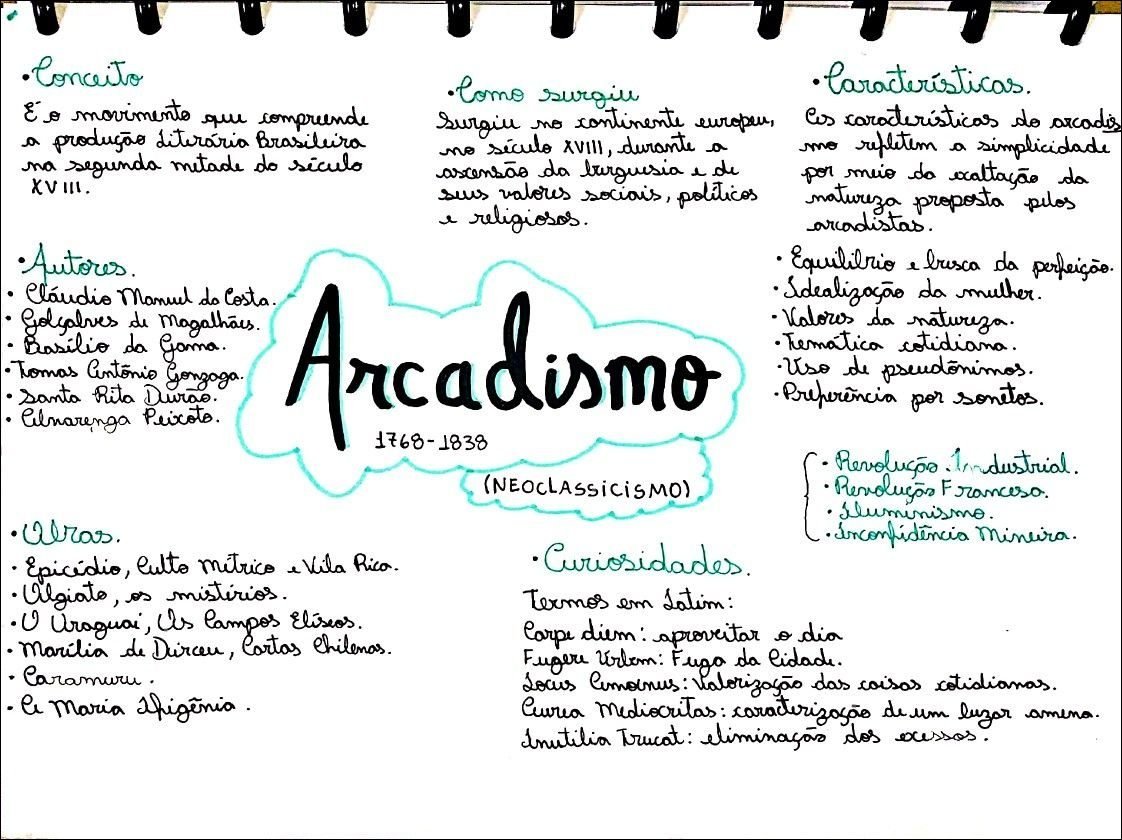 •Conceito
É o movimento que compreende
a produção Literária Brasileira
na segunda metade do século
XVIII.
•Como surgiu
Surgiu no continente europeu,
no século XVIII, durante a
ascensão da burguesia e de
seus valores sociais, políticos
e religiosos.
•Características.
As características do arcadis
mo refletem a simplicidade
por meio da exaltação da
natureza proposta pelos
arcadistas.
• Equilíbrio e busca da perfeição.
• Idealização da mulher.
•Valores da natureza.
•Temática cotidiana.
•Uso de pseudônimos.
•Preferência por sonetos.
•Autores.
• Cláudio Manuel da Costa.
• Golçalves de Magalhães.
• Basílio da Gama.
•Tomas Antônio Gonzaga.
• Santa Rita Durão.
• Alvarenga Peixoto.
Arcadismo
1768-1838
(NEOCLASSICISMO)
• Revolução Industrial.
• Revolução Francesa.
• Iluminismo.
• Inconfidência Mineira.
•Obras.
• Epicédio, Culto Métrico e Vila Rica.
• Olgiato, os mistérios.
• O Uraguai, Os Campos Elíseos.
• Marília de Dirceu, Cartas Chilenas.
• Caramuru.
• A Maria Ifigênia.
•Curiosidades.
Termos em Latim:
Carpe diem: aproveitar o dia
Fugere Urbem: Fuga da Cidade.
Locus Amoenus: Valorização das coisas cotidianas.
Aurea Mediocritas: caracterização de um lugar ameno.
Inutilia Trucat: eliminação dos excessos.